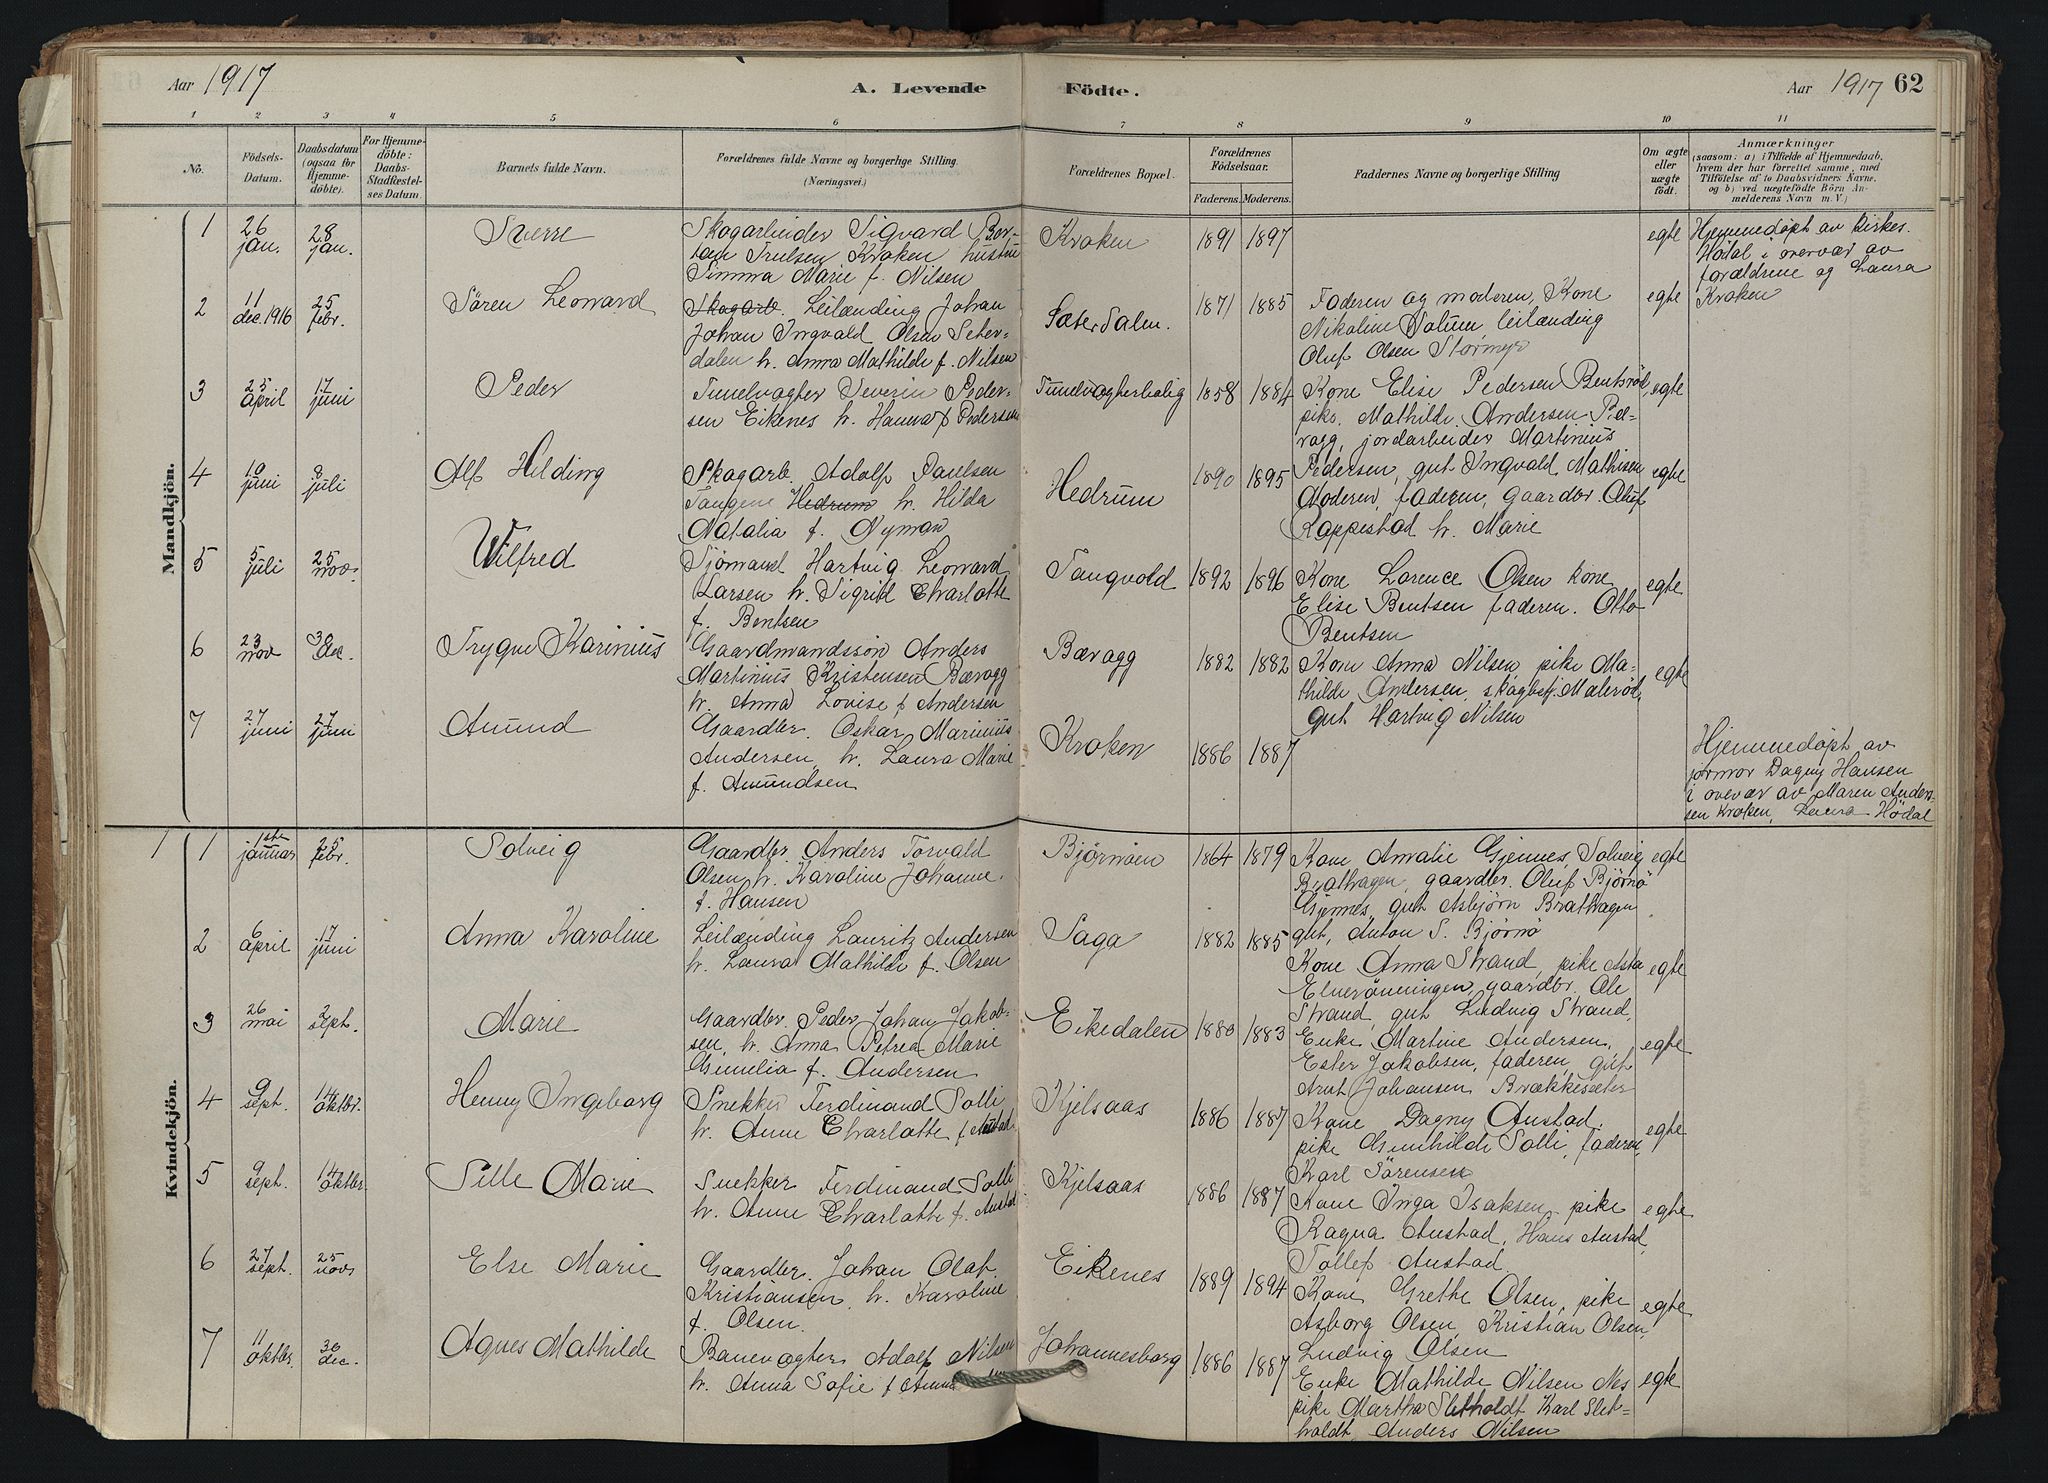 Aar 1917
A. Levende
Födte.
Aar 1917 62
1 2 3 4 5 6 7 8 9 10 11
No.
Födsels-
Datum.
Daabsdatum
(ogsaa for
Hjemme-
döbte).
For Hjemme-
döbte:
Daabs-
Stadfæstel-
ses Datum
Barnets fulde Navn.
Forældrenes fulde Navne og borgerlige Stilling.
(Næringsvei.)
Forældrenes Bopæl.
Forældrenes
Födselsaar.
Faderens. Moderens.
Faddernes Navne og borgerlige Stilling
Om ægte
eller
uægte
födt.
Anmærkninger
(saasom: a) i Tilfælde af Hjemmedaab,
hvem der har forrettet samme, med
Tilföielse af to Daabsvidners Navne,
og b) ved uægtefödte Börn An-
melderens Navn m. V.)
Mandkjön.
1
26
jan.
28
jan.
Sverre
Skogarbeider Sigvard
Truelsen Kroken hustru
Marie f. Nilsen
Kroken
1891 1897
egte
Hjemmedøpt av
Hödal i overvær av
forældrene og Laura
Kroken
2
11
dec. 1916
25
febr.
Sören Leonard
Skogarb. Leilænding Johan
Johan Ingvald Olsen Seter-
dalen h. Anna Mathilde f. Nilsen
Sæterdalen.
1871 1885
Faderen og moderen, Kone
Nikoline Dolven leilænding
Oluf Olsen Stormyr
egte
3
25
april
17
juni
Peder
Tunelvogter Severin Peder-
sen Eikenes h. Hanna f Pedersen
Tunelvogterbolig
1858 1884
Kone Elise Pedersen Bentsröd,
pike Mathilde Andersen Bæ-
vagg, jordarbeider Martinius
Pedersen, gut Ingvald Mathisen
egte
4
10
juni
8
juli
Alf Hilding
Skogarb. Adolf Paulsen
Tangene Hedrum h. Hilda
Natalia f. Nyman
Hedrum
1890 1895
Moderen, faderen, gaardbr. Oluf
Rappestad h. Marie
egte
5
5
juli
25
nov.
Wilfred
Sjömand Hartvig Leonard
Larsen h. Sigrid Charlotte
f. Bentsen
Tangvold
1892 1896
Kone Lorence Olsen kone
Elise Bentsen faderen. Otto
Bentsen
egte
6
23
nov
30
dec.
Trygve Karinius
Gaardmandssön Anders
Martinius Kristensen Bævagg
h. Anna Lovise f Andersen
Bævagg
1882 1882
Kone Anna Nilsen pike Ma-
thilde Andersen, skogbetj. Maleröd,
gut Hartvig Nilsen
egte
7
27
juni
27
juni
Amund
Gaardbr. Oskar Marinius
Andersen h. Laura Marie
f. Amundsen
Kroken
1886 1887
Hjemmedøpt av
jormor Dagny Hansen
i overvær av Maren Anders-
sen Kroken, Laura Hödal
Kvindekjön.
1 1
1ste
januar
25
febr.
Solveig
Gaardbr. Anders Torvald
Olsen h. Karoline Johanne
f. Hansen
Björnöen
1864 1879
Kone Amalie Gjennes, Solveig
Brathagen, gaardbr. Oluf Björnö
Gjennes, gut Asbjörn Brathagen
gut, Anton S. Björnö
egte
2
6
april
17
juni
Anna Karoline
Leilænding Lauritz Andersen
h. Laura Mathilde f. Olsen
Saga
1882 1885
Kone Anna Strand, pike Asta
gaardbr. Ole
Strand, gut Ludvig Strand,
egte
3
26
mai
2
sept.
Marie
Gaardbr. Peder Johan Jakob-
sen, h. Anna Petrea Marie
Gunelia f. Andersen
Eikedalen
1880 1883
Enke Martine Andersen,
Ester Jakobsen, faderen, gut
Arnt Johansen Brækkesæter
egte
4
9
sept.
14
oktbr.
Henny Ingeborg
Snekker Ferdinand Solli
h. Anne Charlotte f Austad
Kjelsaas
1886 1887
Kone Dagny Austad,
pike Gunhilde Solli, faderen
Karl Sörensen
egte
5
9
sept.
14
oktbr
Sille Marie
Snekker Ferdinand Solli
h. Anne Charlotte f. Austad
Kjelsaas
1886 1887
Kone Inga Isaksen, pike
Ragna Austad, Hans Austad,
Tollef Austad.
egte
6
27
sept.
25
nov.
Else Marie
Gaardbr. Johan Olaf
Kristiansen, h. Karoline
f. Olsen.
Eikenes
1889 1894
Kone Grethe Olsen, pike
Asborg Olsen, Kristian Olsen,
Ludvig Olsen
egte
7
11
oktbr.
30
dec.
Agnes Mathilde
Banevogter Adolf Nilsen
h. Anna Sofie f
Johannesborg
1886 1887
Enke Mathilde Nilsen Nes
pike Martha Sletholdt Karl Slet-
holdt, Anders Nilsen
egte